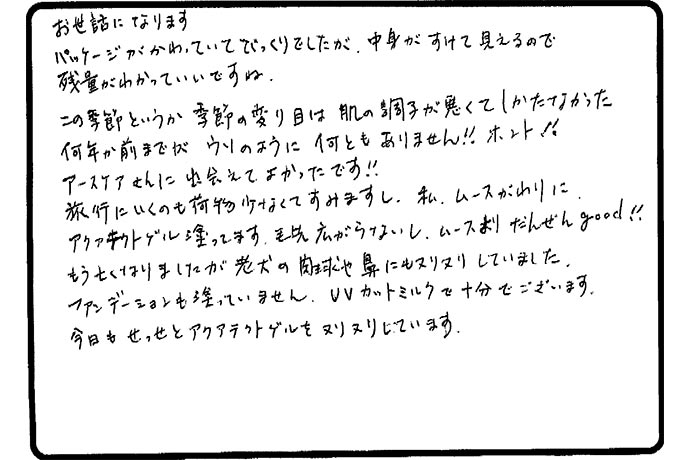 お世話になります
パッケージがかわっていてびっくりでしたが、中身がすけて見えるので
残量がわかっていいですね。
この季節というか 季節の変り目は 肌の調子が悪くてしかたなかった
何年か前までが ウソのように 何ともありません!! ホント!!
アースケアさんに 出会えてよかったです!!
旅行にいくのも荷物少なくてすみますし、私、ムースがわりに、
アクアテクトゲル塗ってます。毛先広がらないし、ムースよりだんぜんgood!!
もう亡くなりましたが老犬の肉球や鼻にもヌリヌリしていました。
ファンデーションも塗っていません。UVカットミルクで十分でございます。
今日もせっせとアクアテクトゲルをヌリヌリしています。